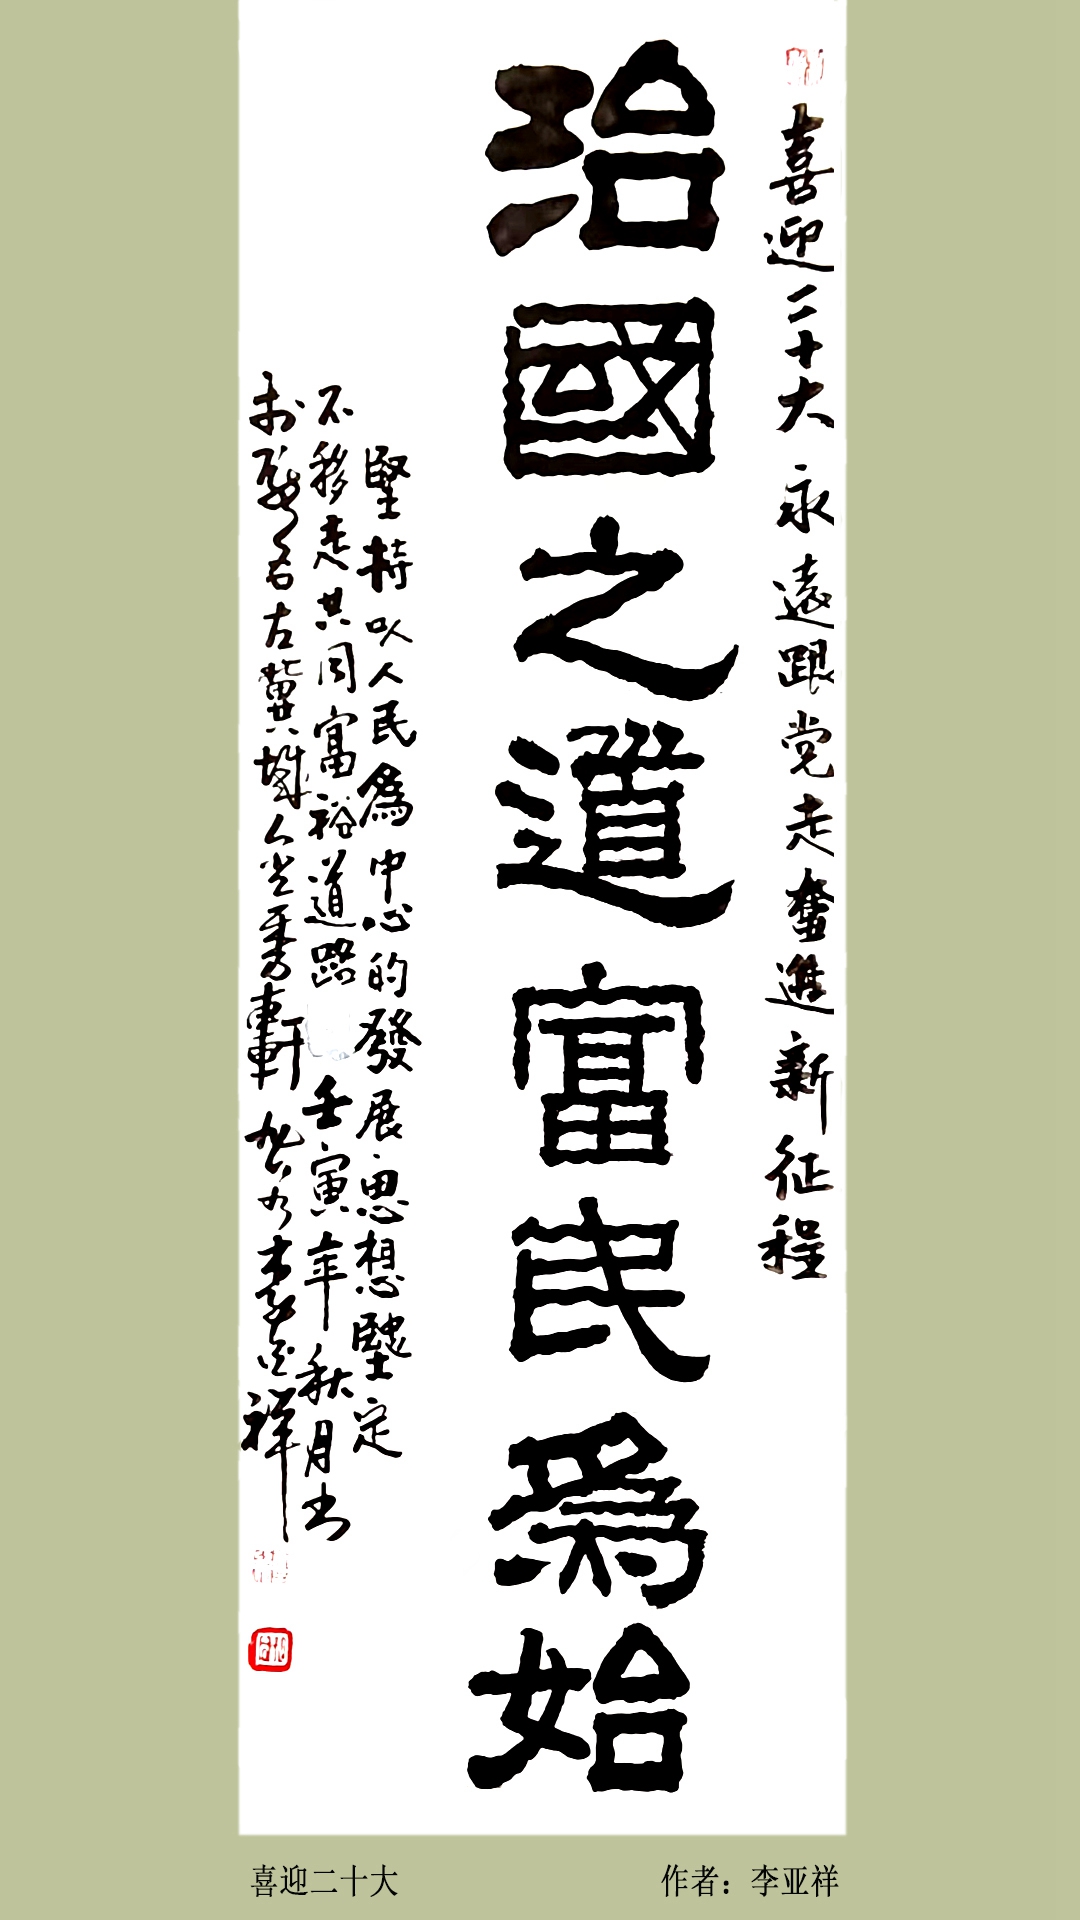 喜迎二十大永遠跟党走奮進新征程
治國之道富民為始
堅持以人民為中心的發展思想堅定
不移走共同富裕道路壬寅年秋月书
古冀城
軒
祥
喜迎二十大
作者：李亚祥